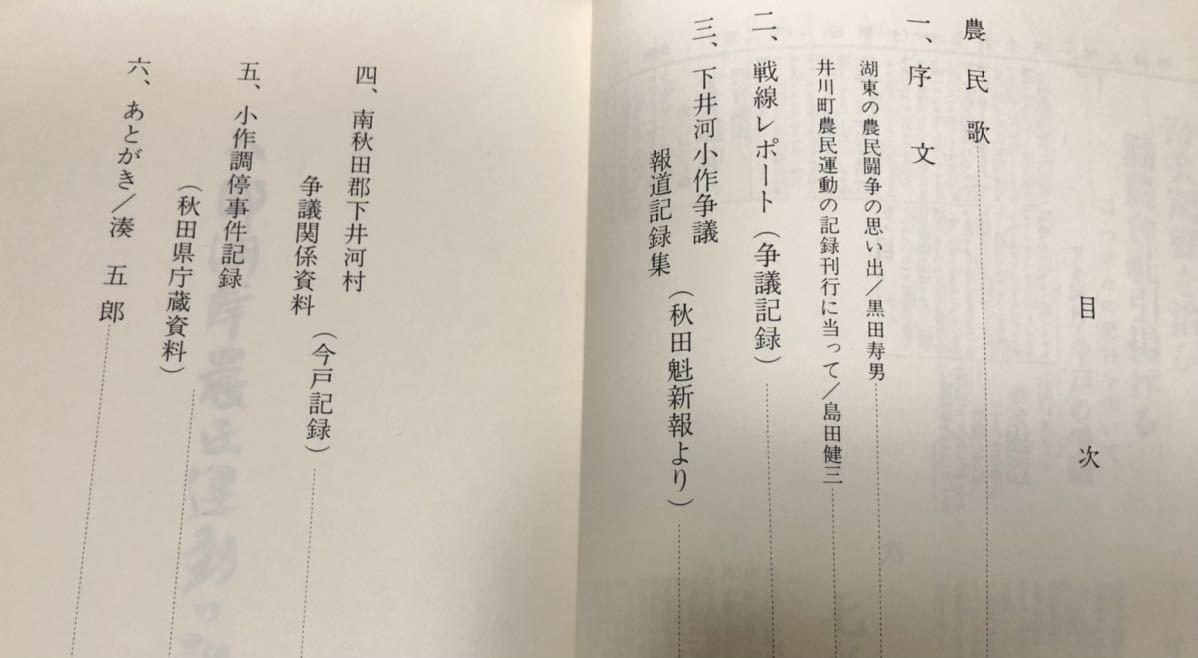 目次
農民歌
一、序文
湖東の農民闘争の思い出/黒田寿男
井川町農民運動の記録刊行に当って/島田健三
二、戦線レポート(争議記録)
三、下井河小作争議
報道記録集(秋田魁新報より)
四、南秋田郡下井河村
争議関係資料(今戸記録)
五、小作調停事件記録
(秋田県庁蔵資料)
六、あとがき/湊五郎